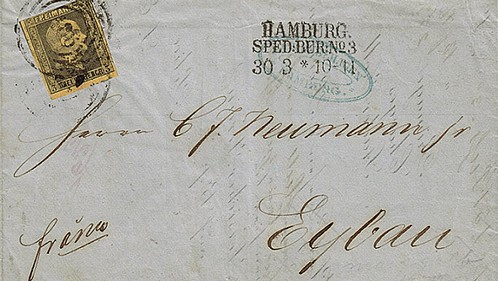 FREIMARKE
HAMBURG.
SPED:BUR:No3
30 3 * 10-11
HAMBURG
Herrn C J. Neumann jr
Eybau
franco